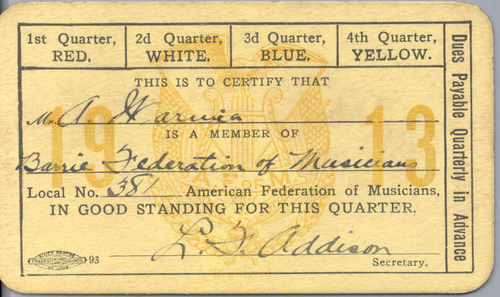 1st Quarter, RED.
2d Quarter, WHITE.
3d Quarter, BLUE.
4th Quarter, YELLOW.
THIS IS TO CERTIFY THAT
Mr A. Warnica
IS A MEMBER OF
Barrie Federation of Musicians
Local No. 381 American Federation of Musicians,
IN GOOD STANDING FOR THIS QUARTER.
L. S. Addison
Secretary.
93
Dues Payable Quarterly in Advance
1913